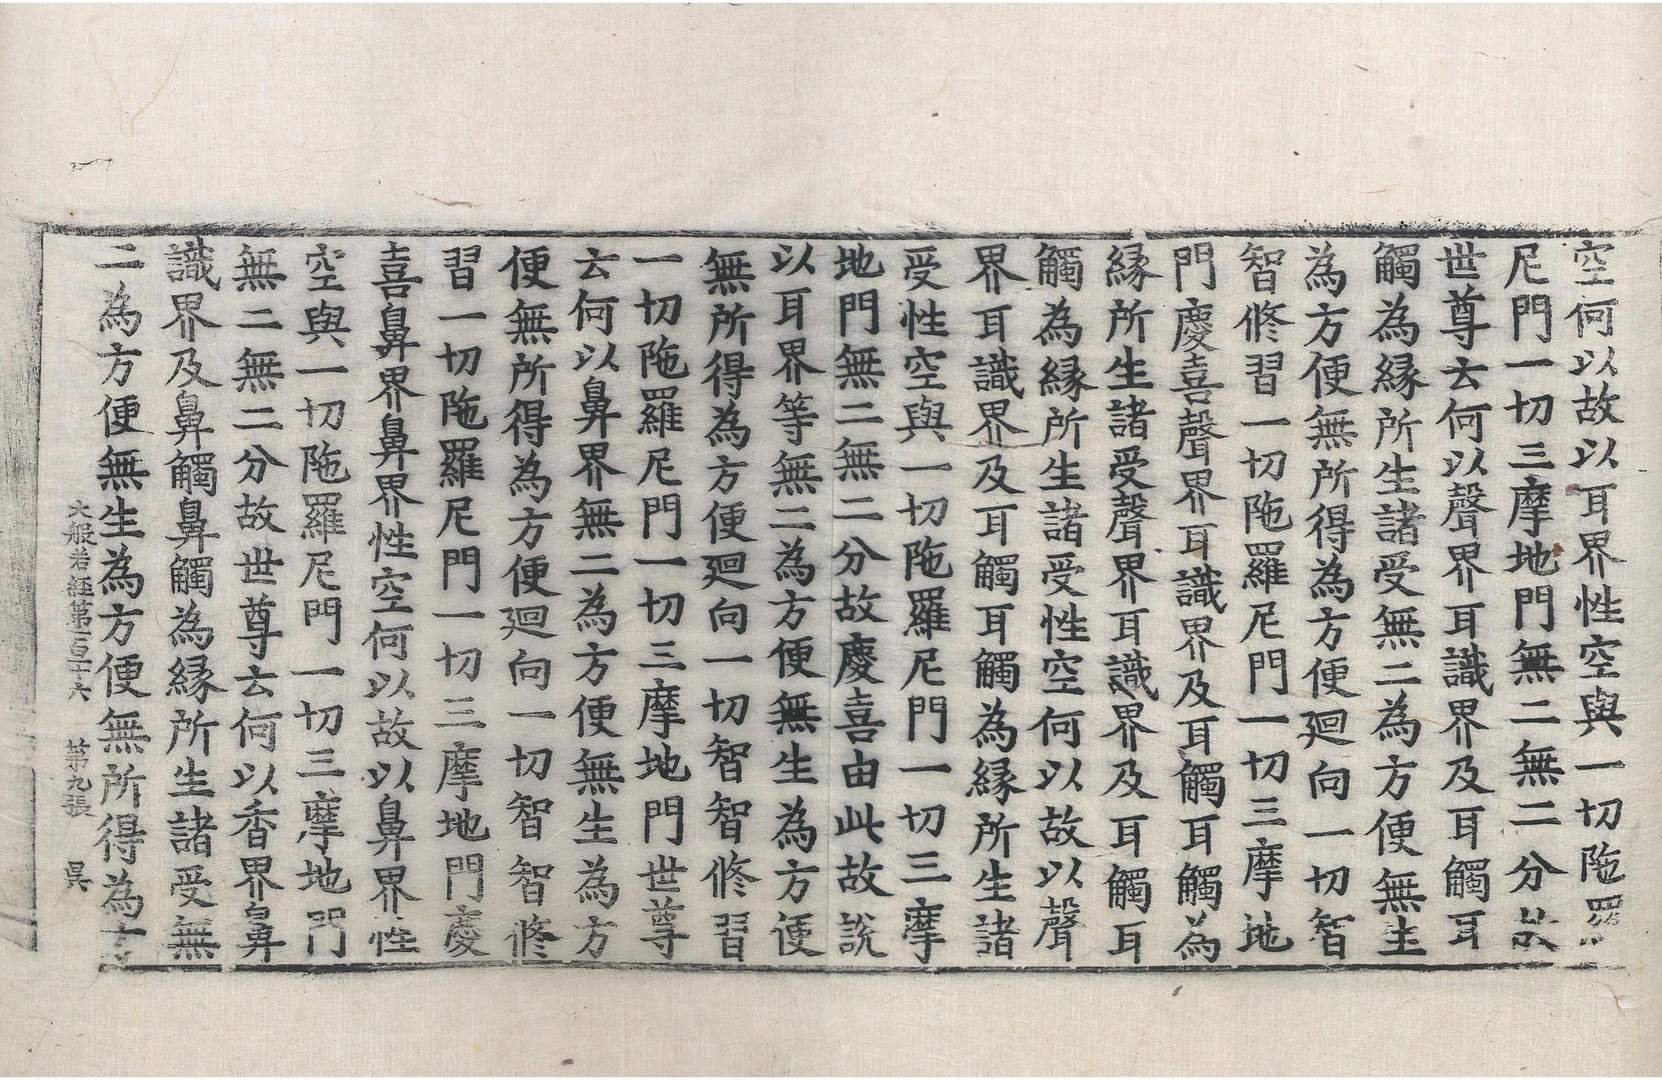 空何以故以耳界性空與一切陁羅
尼門一切三摩地門無二無二分故
世尊云何以聲界耳識界及耳觸耳
觸為緣所生諸受無二為方便無生
為方便無所得為方便迴向一切智
智修習一切陁羅尼門一切三摩地
門慶喜聲界耳識界及耳觸耳觸為
緣所生諸受聲界耳識界及耳觸耳
觸為緣所生諸受性空何以故以聲
界耳識界及耳觸耳觸為緣所生諸
受性空與一切陁羅尼門一切三摩
地門無二無二分故慶喜由此故說
以耳界等無二為方便無生為方便
無所得為方便迴向一切智智修習
一切陁羅尼門一切三摩地門世尊
云何以鼻界無二為方便無生為方
便無所得為方便迴向一切智智修
習一切陁羅尼門一切三摩地門慶
喜鼻界鼻界性空何以故以鼻界性
空與一切陁羅尼門一切三摩地門
無二無二分故世尊云何以香界鼻
識界及鼻觸鼻觸為緣所生諸受無
二為方便無生為方便無所得為方
大般若經第一百二十六 第九張 昃